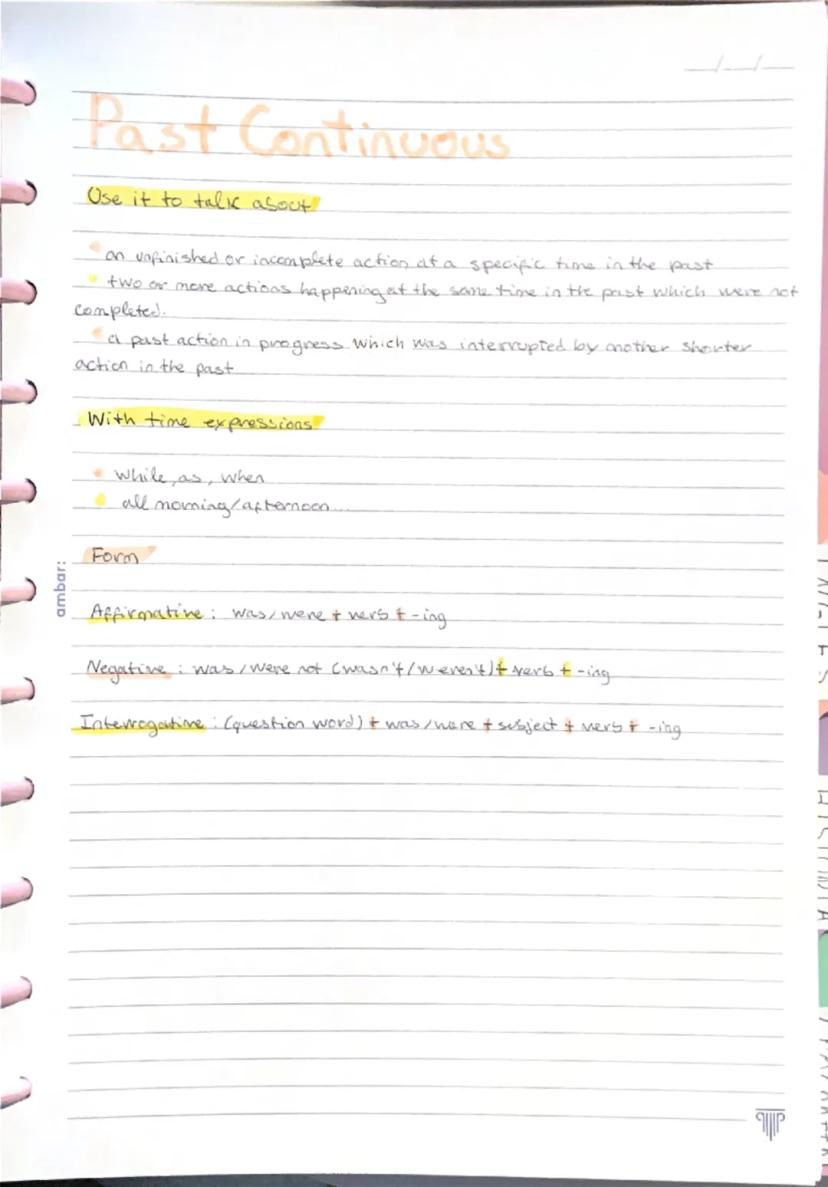 __/__/__
Past Continuous
Use it to talk about
an unfinished or incomplete action at a specific time in the past
two or more actions happening at the same time in the past which were not
completed.
a past action in progress which was interrupted by another shorter
action in the past
With time expressions
while, as, when
all morning/afternoon...
Form
ambar:
Affirmative: was/were + verb + -ing
Negative: was/were not (wasn't/weren't) + verb + -ing
Interrogative: (question word) + was/were + subject + verb + -ing